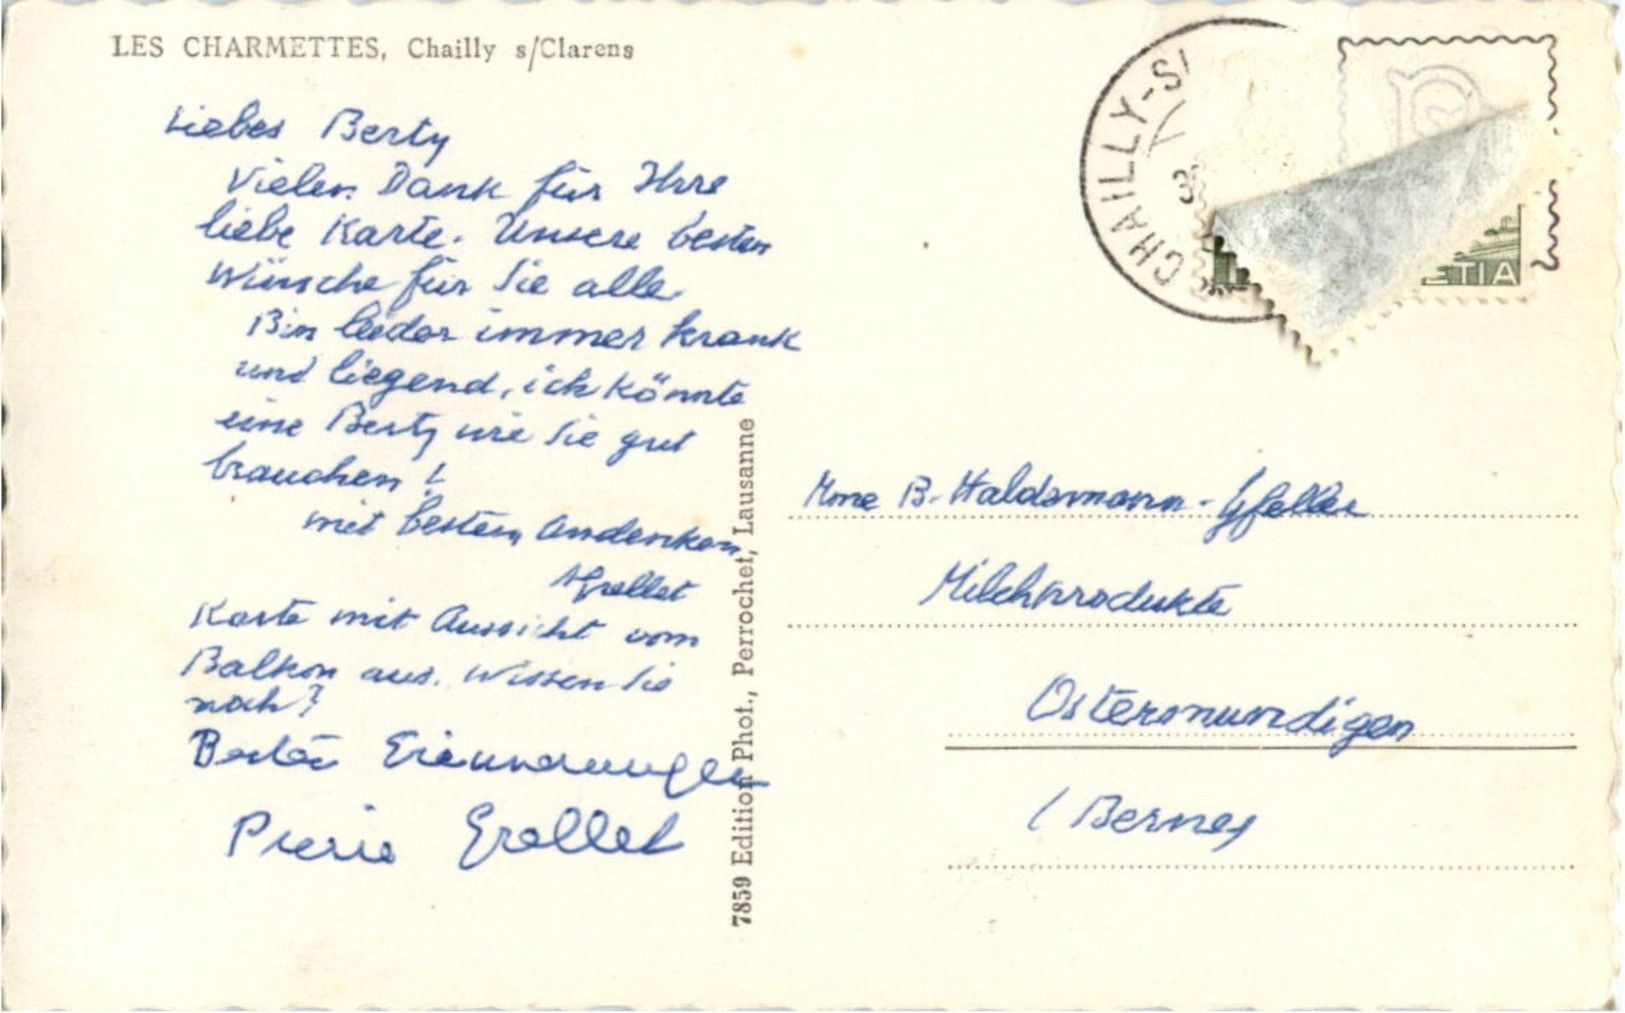 LES CHARMETTES, Chailly s/Clarens
Liebes Berty
Vielen Dank für Ihre
liebe Karte. Unsere besten
Wünsche für Sie alle.
Bin leider immer krank
und liegend, ich könnte
eine Berty wie Sie gut
brauchen!
mit bestem Andenken
AGrellet
Karte mit Aussicht vom
Balkon aus. Wissen Sie
noch?
Beste Erinnerungen
Pierre Grellet
7859 Edition Phot., Perrochet, Lausanne
CHAILLY-S/
3
ETIA
Mme B. Haldemann-Gfeller
Milchprodukte
Ostermundigen
(Berne)